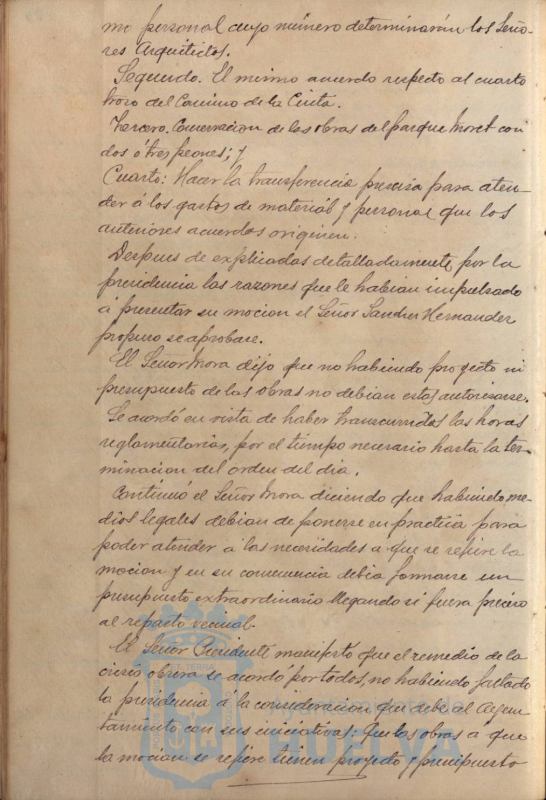 mo personal cuyo número determinarán los Seño-
res Arquitectos.
Segundo. El mismo acuerdo respecto al cuarto
trozo del Camino de la Cinta.
Tercero. Conservacion de las obras del parque Moret con
dos ó tres peones; y
Cuarto: Hacer la transferencia precisa para aten-
der á los gastos de material y personal que los
anteriores acuerdos originen.
Despues de explicadas detalladamente por la
presidencia las razones que le habian impulsado
á presentar su mocion el Señor Sanchez Hernandez
propuso se aprobase.
El Señor Mora dijo que no habiendo proyecto ni
presupuesto de las obras no debian estas autorisarse.
Se acordó en vista de haber transcurridos las horas
reglamentarias, por el tiempo necesario hasta la ter-
minacion del órden del dia.
Continuó el Señor Mora diciendo que habiendo me-
dios legales debian de ponerse en practica para
poder atender á las necesidades a que se refiere la
mocion y en su consecuencia debia formarse un
presupuesto extraordinario llegando si fuera preciso
al reparto vecinal.
El Señor Presidente manifestó que el remedio de la
crisis obrera se acordó por todos, no habiendo faltado
la presidencia á la consideracion que debe al Ayun-
tamiento con sus iniciativas; Que las obras á que
la mocion se refiere tienen proyecto y presupuesto
HUELVA